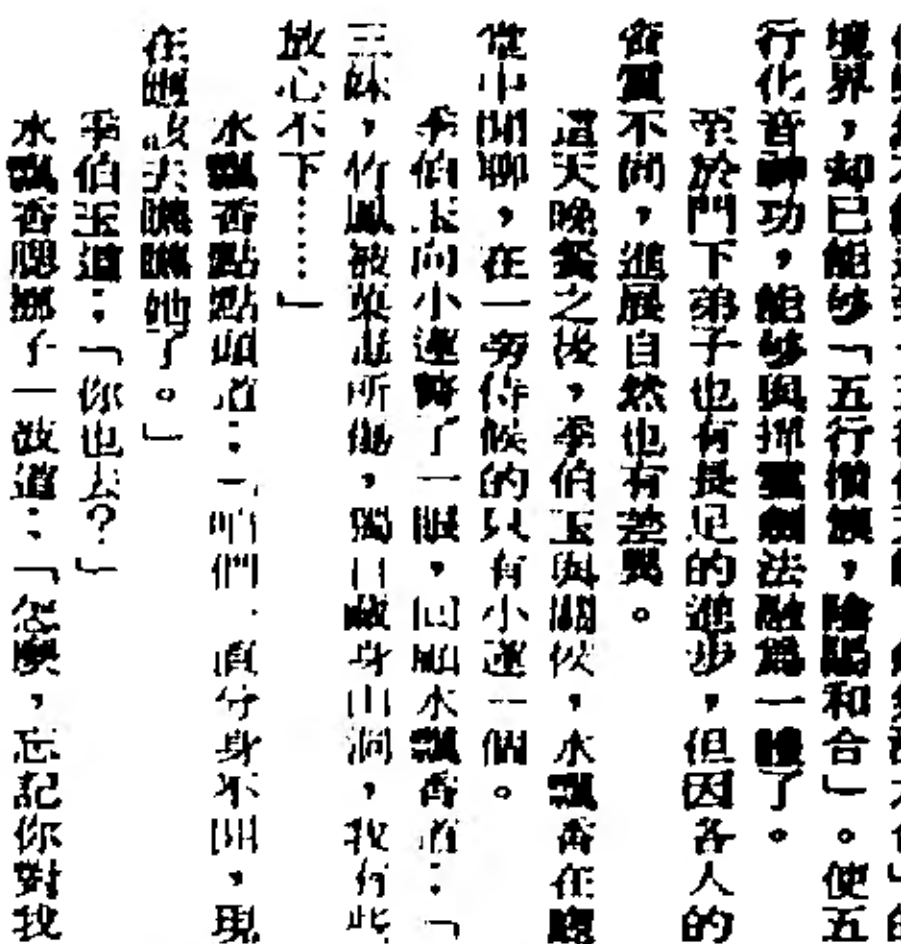 境界，却已能够「五行懾旗，陰陽和合」。便五
行化音神功，能够與揮雲劍法融爲一體了。
至於門下弟子也有長足的進步，但因各人的
資質不同，進展自然也有差異。
這天晚餐之後，季伯玉與關候，水飄香在廳
堂中閒聊，在一旁侍候的只有小蓮一個。
季伯玉向小蓮瞥了一眼，回顧水飄香道：「
三妹，竹鳳被巢湖所傷，獨自藏身山洞，我有些
放心不下……」
水飄香點點頭道：「咱們一直分身不開，現
在應該去瞧瞧她了。」
季伯玉道：「你也去？」
水飄香腮幫子一鼓道：「怎麽，忘記你對我